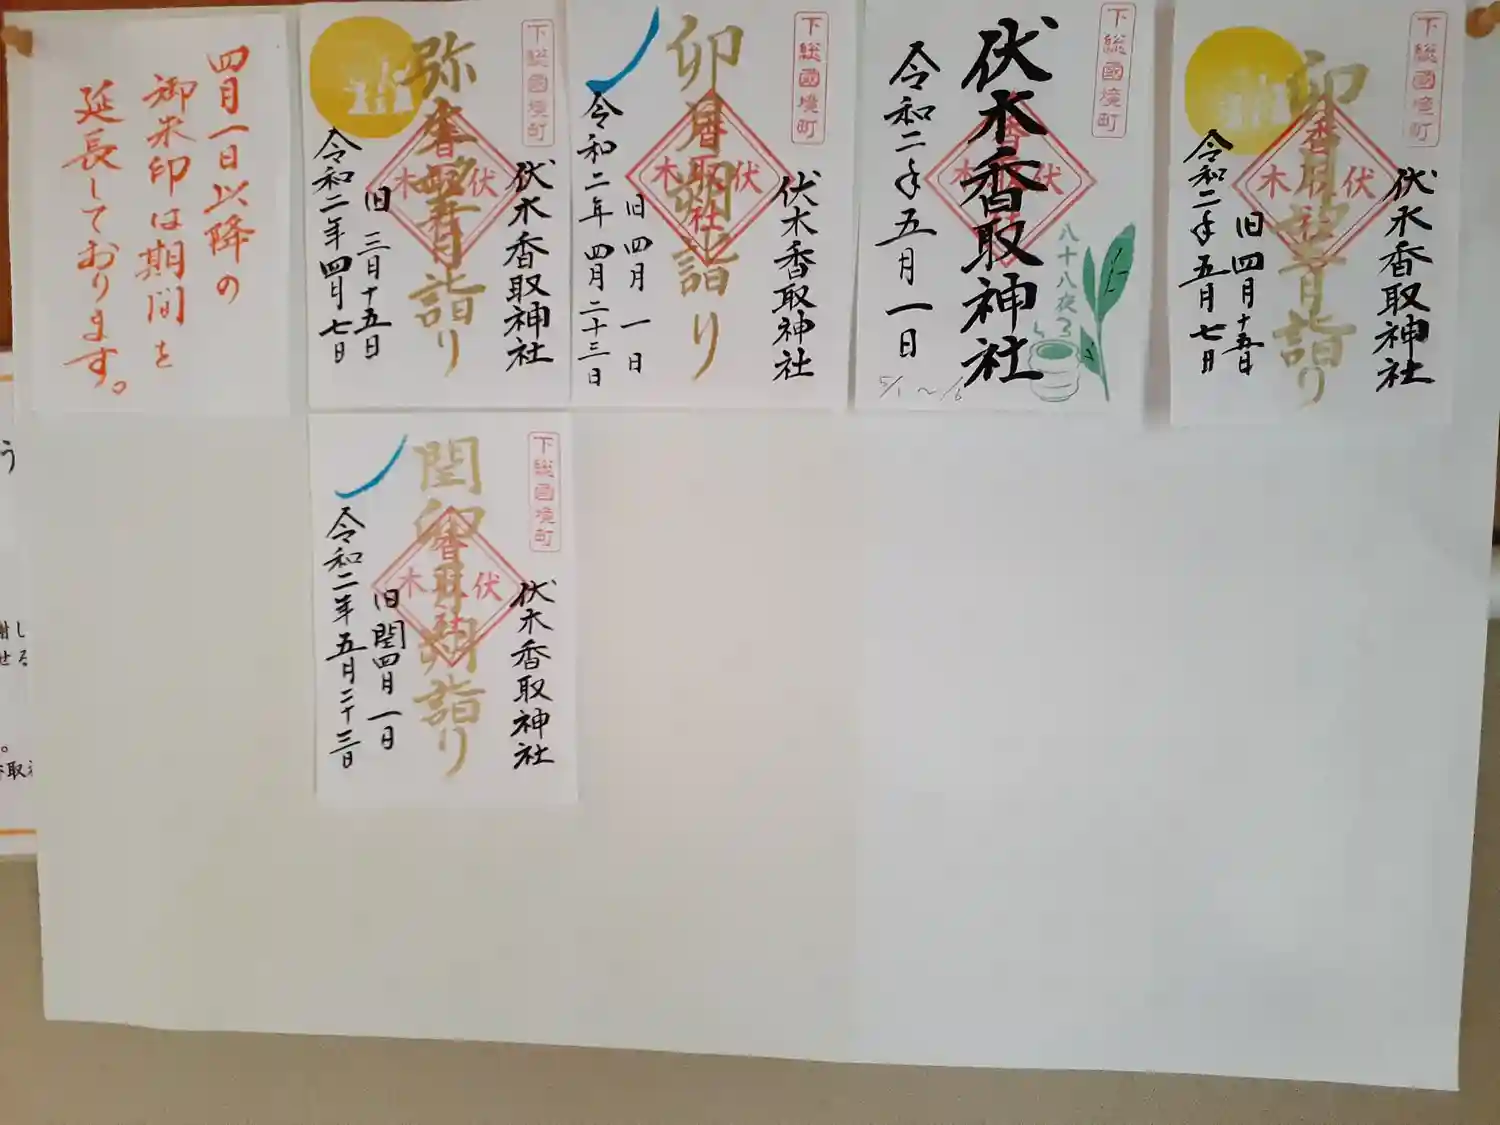 四月一日以降の
御朱印は期間を
延長しております。
下総國境町
弥生望月詣り
伏木香取神社
旧三月十五日
令和二年四月七日
伏木
香取社
下総國境町
卯月朔詣り
伏木香取神社
旧四月一日
令和二年四月二十三日
伏木
香取社
下総國境町
伏木香取神社
令和二年五月一日
八十八夜
伏木
5/1〜
下総國境町
卯月望月詣り
伏木香取神社
旧四月十五日
令和二年五月七日
伏木
香取社
下総國境町
閏卯月朔詣り
伏木香取神社
旧閏四月一日
令和二年五月二十三日
伏木
香取社
う
謝し
せる
香取